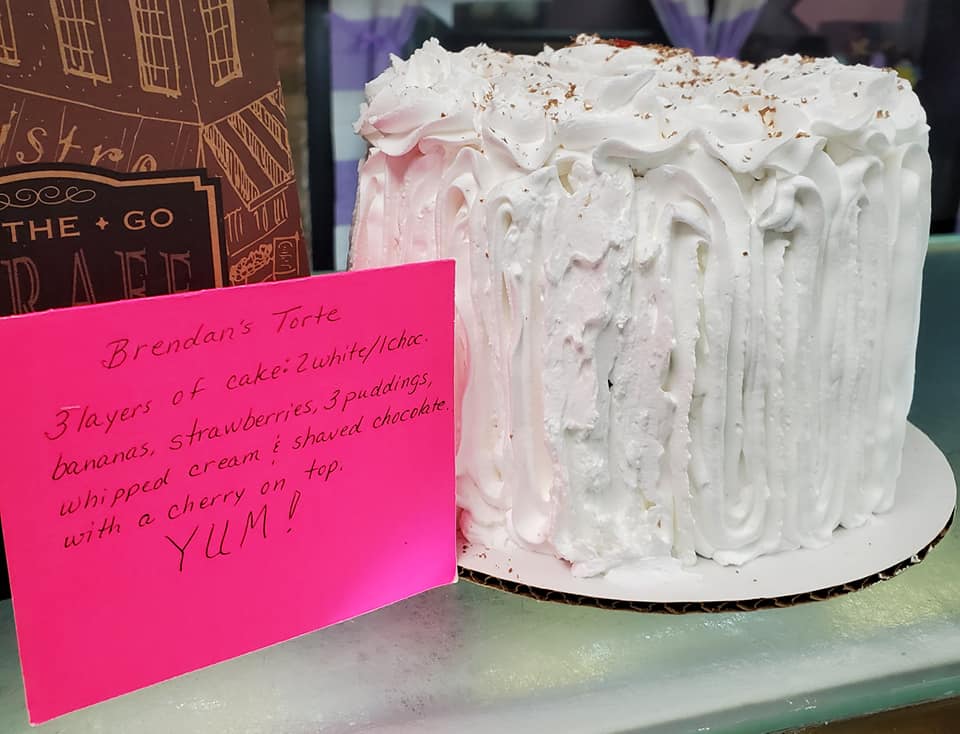 THE + GO
Brendan's Torte
3 layers of cake: 2 white/1 choc.
bananas, strawberries, 3 puddings,
whipped cream & shaved chocolate.
with a cherry on top.
YUM!